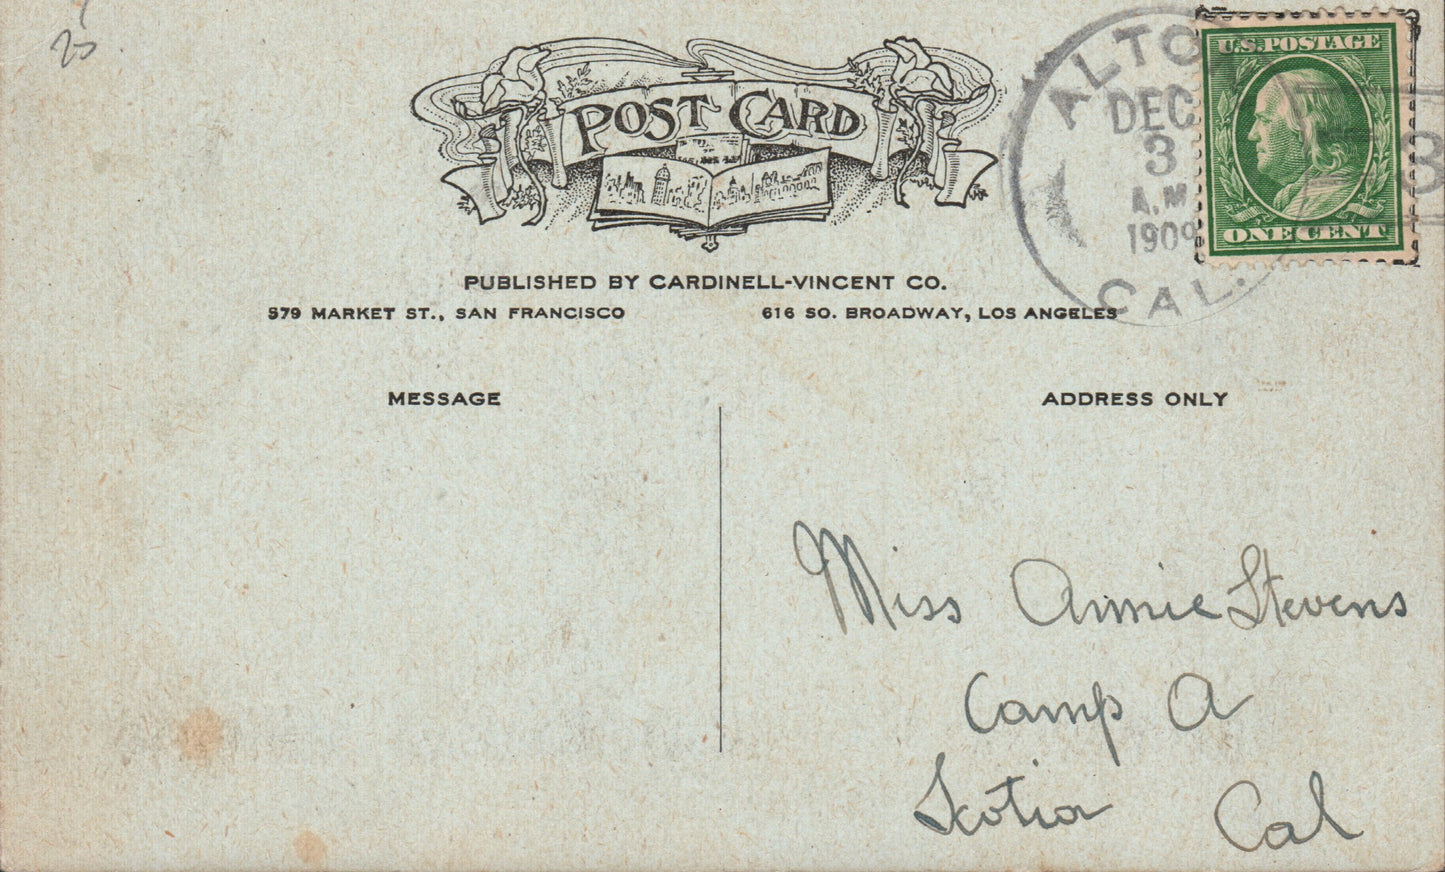 25
POST CARD
PUBLISHED BY CARDINELL-VINCENT CO.
579 MARKET ST., SAN FRANCISCO
616 SO. BROADWAY, LOS ANGELES
ALTO
DEC
3
A.M
1909
CAL.
U.S. POSTAGE
ONE CENT
3
MESSAGE
ADDRESS ONLY
Miss Annie Stevens
Camp A
Scotia Cal